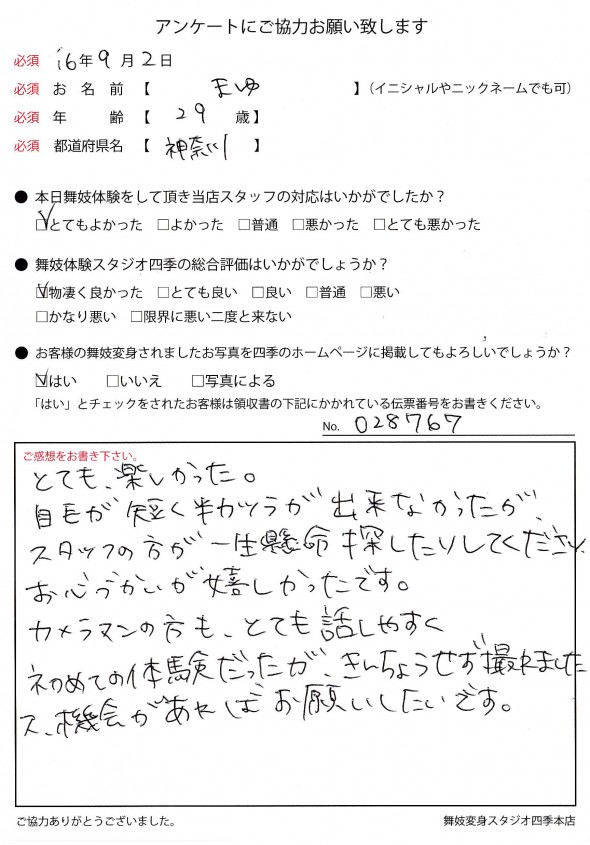 アンケートにご協力お願い致します
必須 i6年9月2日
必須 お名前【 まゆ 】(イニシャルやニックネームでも可)
必須 年齢【 29 歳】
必須 都道府県名【 神奈川 】
● 本日舞妓体験をして頂き当店スタッフの対応はいかがでしたか?
☑とてもよかった □よかった □普通 □悪かった □とても悪かった
● 舞妓体験スタジオ四季の総合評価はいかがでしょうか?
☑物凄く良かった □とても良い □良い □普通 □悪い
□かなり悪い □限界に悪い二度と来ない
● お客様の舞妓変身されましたお写真を四季のホームページに掲載してもよろしいでしょうか?
☑はい □いいえ □写真による
「はい」とチェックをされたお客様は領収書の下記にかかれている伝票番号をお書きください。
No. 028767
ご感想をお書き下さい。
とても、楽しかった。
自毛が短く半カツラが出来なかったが、
スタッフの方が一生懸命探したりしてください、
お心づかいが嬉しかったです。
カメラマンの方も、とても話しやすく
初めての体験だったが、きんちょうせず撮れました
又、機会があればお願いしたいです。
ご協力ありがとうございました。
舞妓変身スタジオ四季本店